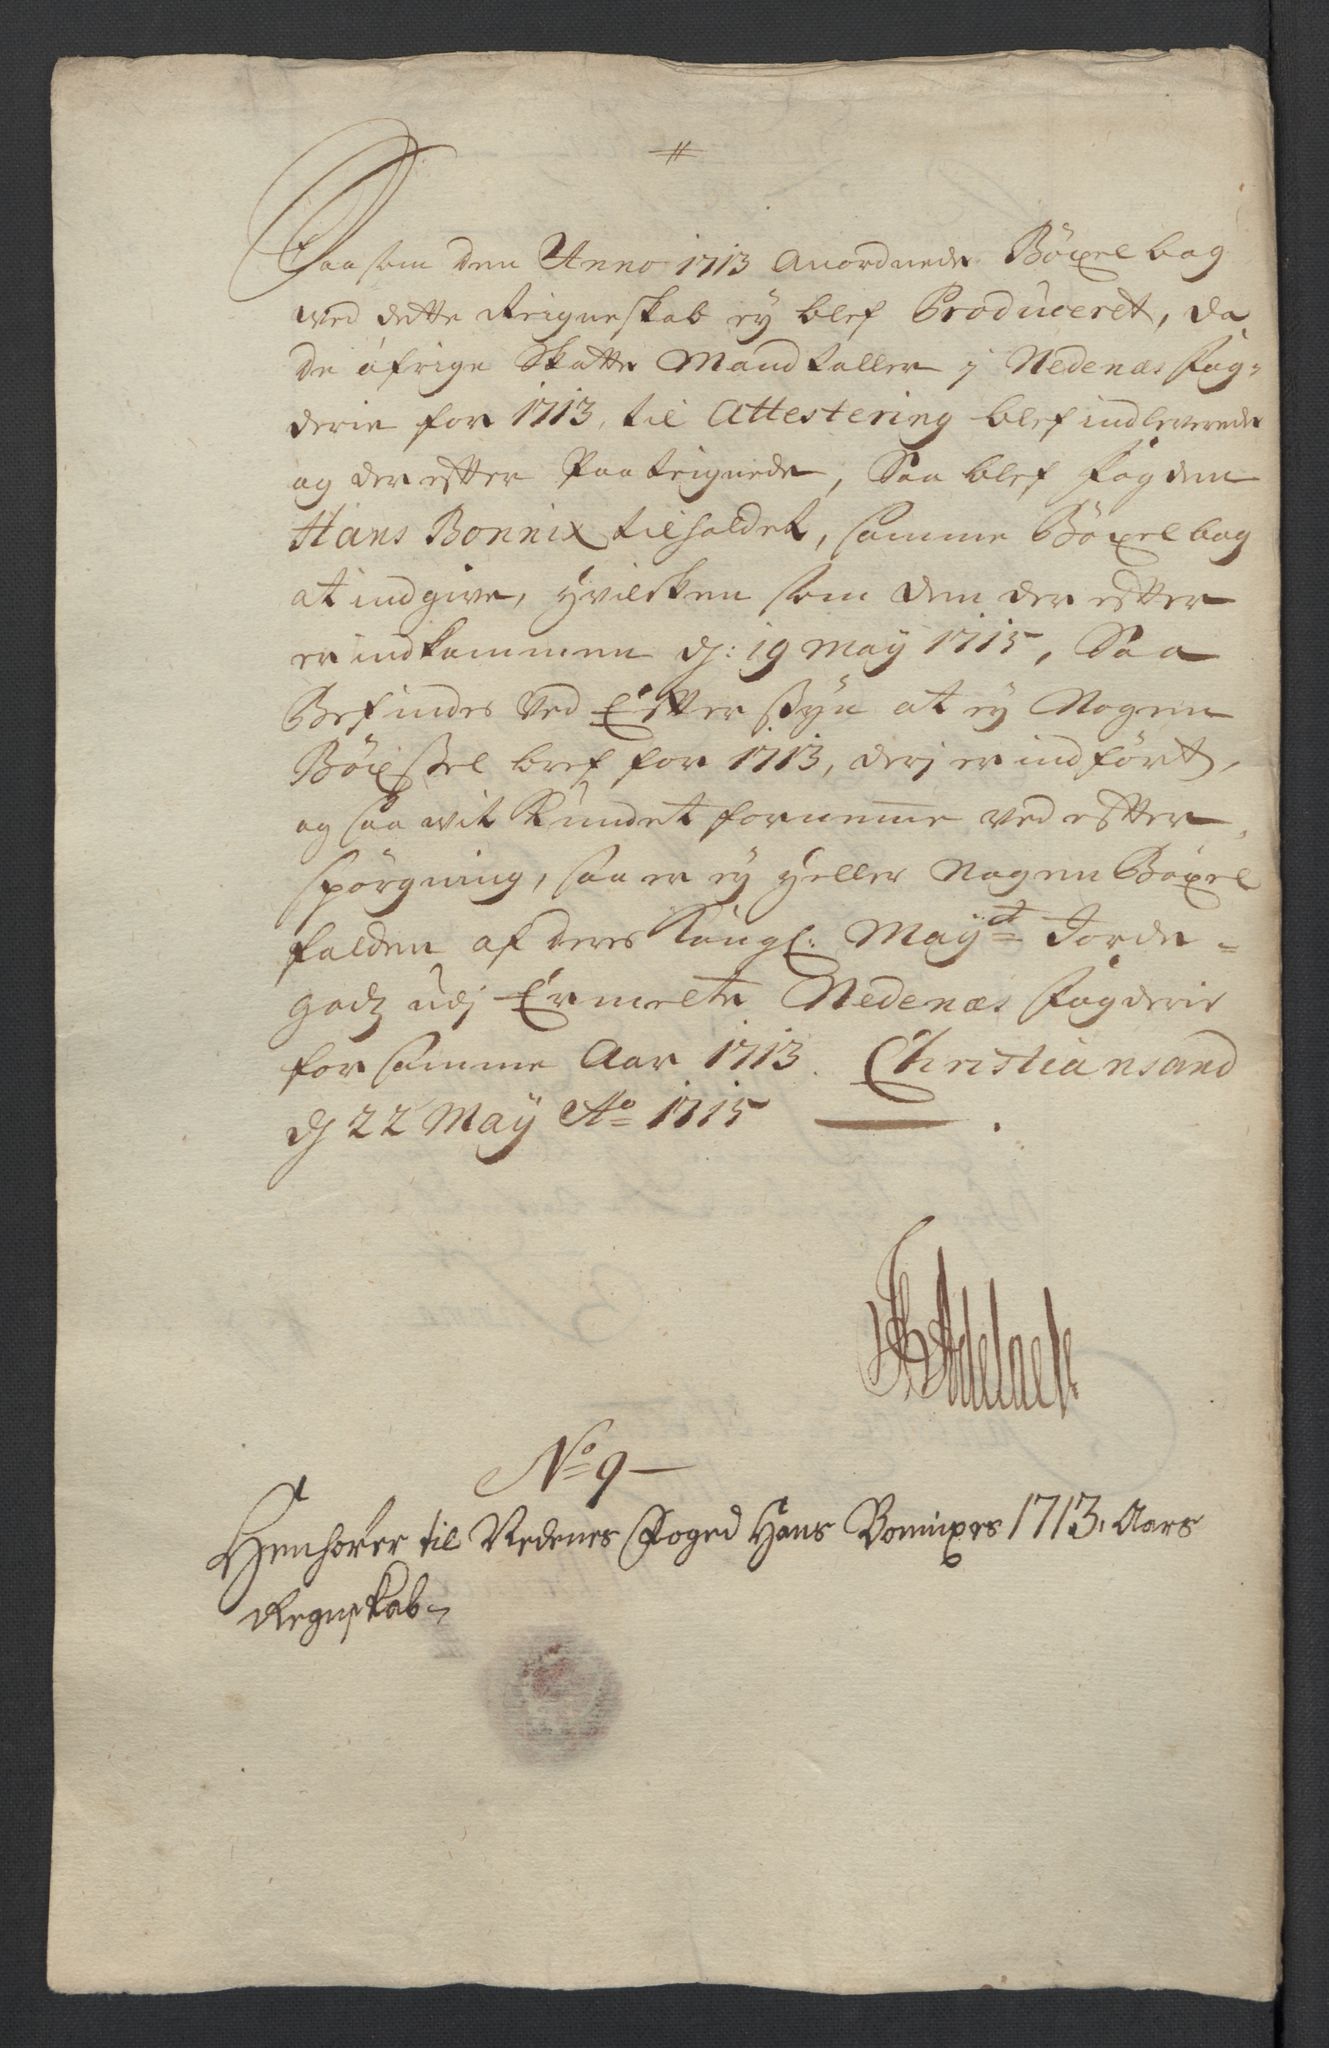 //
Saasom den Anno 1713 Anordnede Böxel bog
ved dette Reigneskab ey blef Produceret, da
de öfrige Skatte Mandtaller j Nedenæs fog-
derie for 1713, til Attestering blef indleverede
og der efter Paateignede, Saa blef fogden
Hans Bonnix tilholdet, samme Böxel bog
at indgive, hvilcken som den der efter
er indkommen dj: 19 May 1715, Saa
Befindes Ved Efter ßyn at ey Nogen
Böxßel bref for 1713, derj er indfört,
og saa vit Kundet fornemme ved efter
spörgning, saa er ey heller Nogen Böxel
falden af deres Kongl: Mayts Jorde-
godz udj Ermelte Nedenæs fogderie
for samme Aar 1713. Christiansand
dj 22 May Ao 1715
Adelaer
No 9
Henhører til Nedenes Foged Hans Bonnixes 1713, Aars
Regnskab